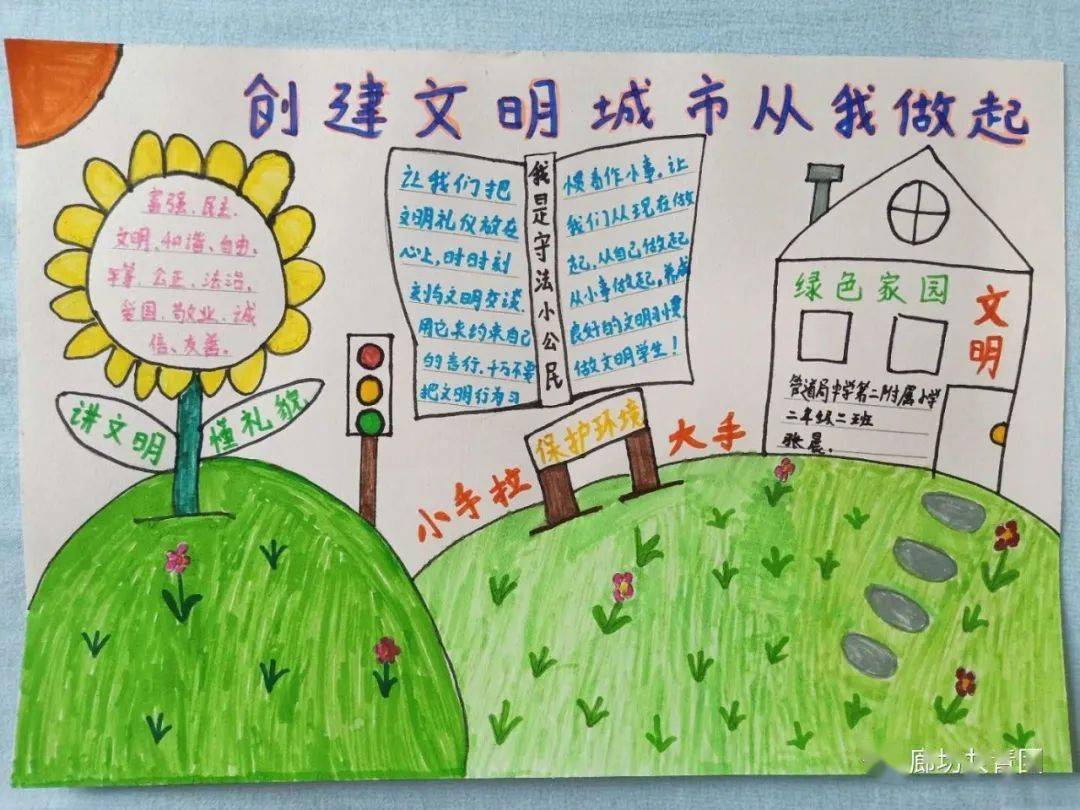 创建文明城市从我做起
富强、民主、
文明、和谐、自由、
平等、公正、法治、
爱国、敬业、诚
信、友善。
讲文明
懂礼貌
让我们把
文明礼仪放在
心上,时时刻
刻与文明交谈.
用它来约束自己
的言行,千万不要
把文明行为习
我是守法小公民
惯看作小事。让
我们从现在做
起,从自己做起
从小事做起,养成
良好的文明习惯
做文明学生!
小手拉
保护环境
大手
绿色家园
文明
管道局中学第二附属小学
二年级二班
张晨.